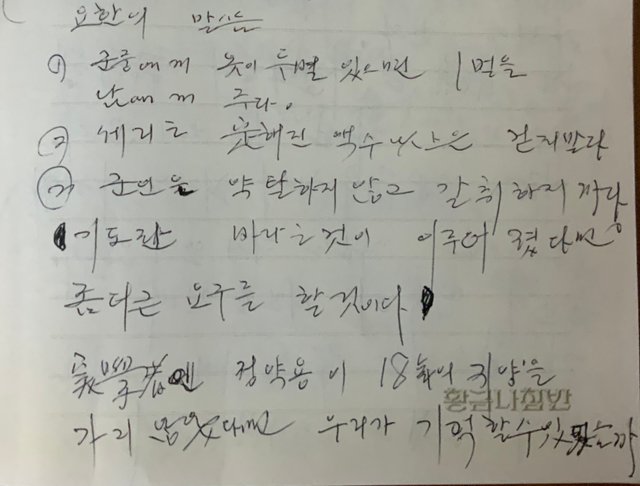 요한의 말씀
① 군중에게 옷이 두벌 있으면 1벌을
남에게 주라.
② 세리는 定해진 액수 이상은 걷지말라
③ 군인은 약탈하지 않고 갈취하지 마라
기도란 바라는것이 이루어 졌다면
좀더큰 요구를 할것이다
정약용이 18年의 귀양을
황금나침반
가지 않았다면 우리가 기억할수있었을까